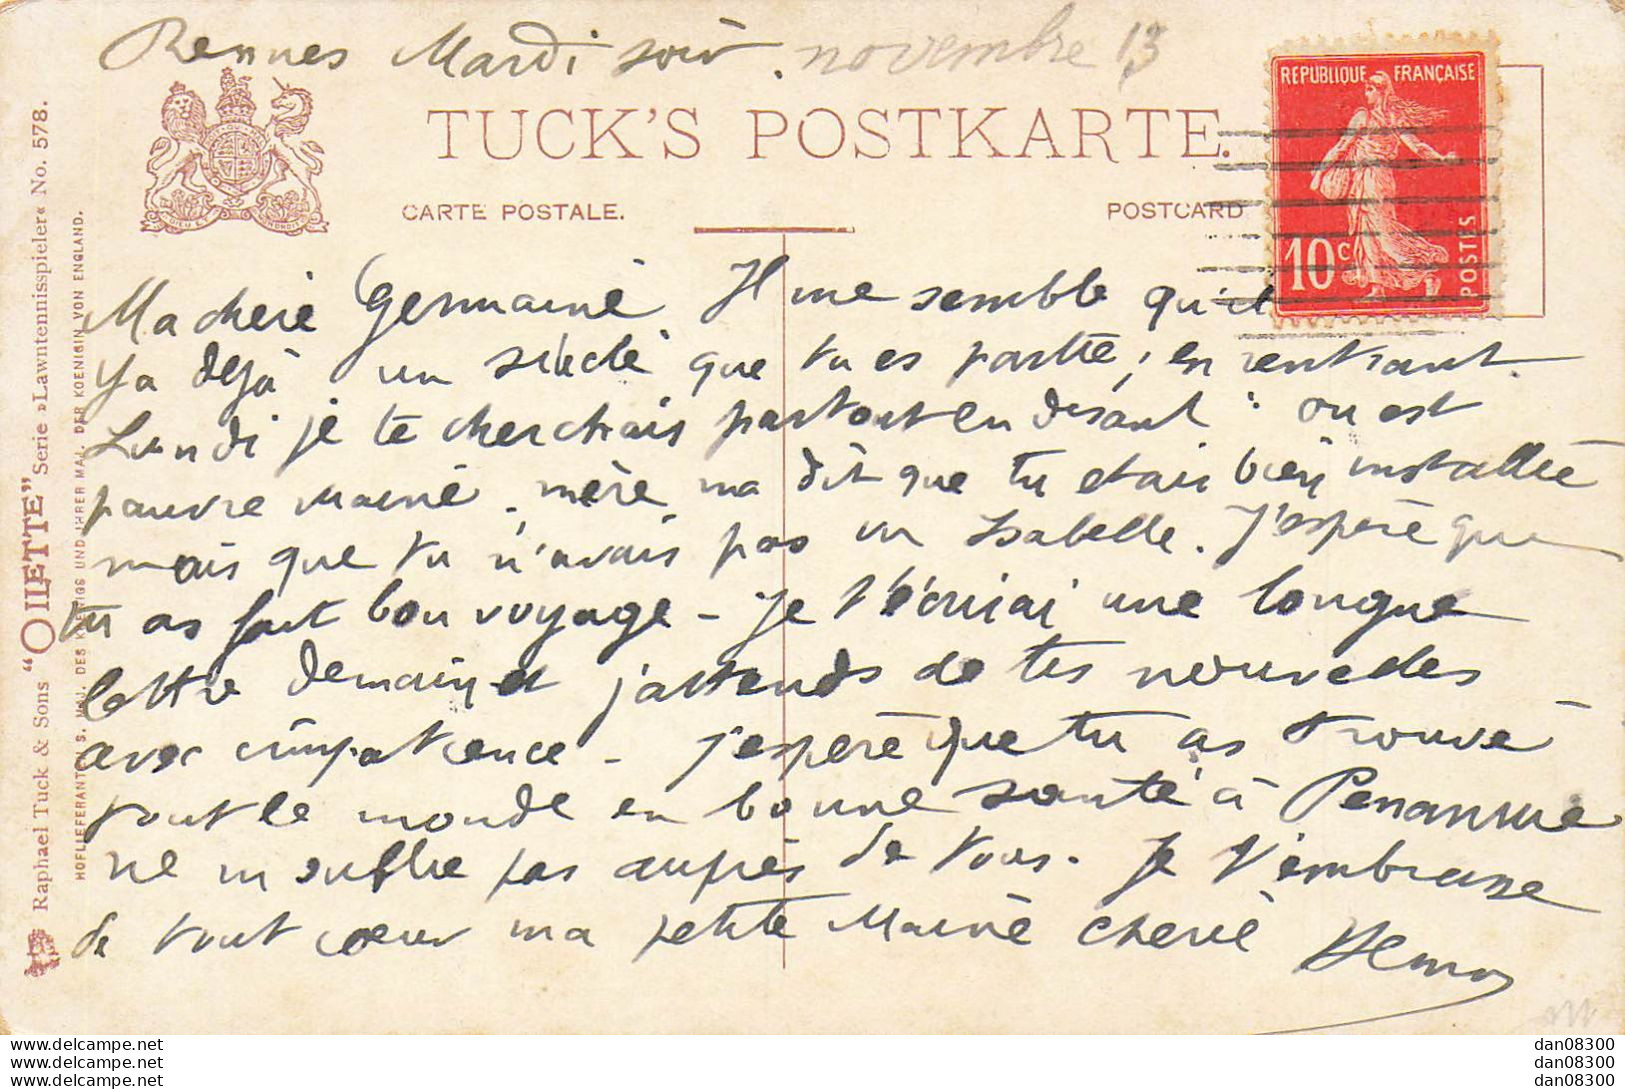 Rennes Mardi soir. novembre 13
REPUBLIQUE FRANÇAISE
10c
POSTES
TUCK'S POSTKARTE.
CARTE POSTALE.
POSTCARD
Ma cherie Germaine Il me semble qu'il
y a dejà un siècle que tu es partie, en rentrant
Lundi je te cherchais partout en disant : ou est
pauvre Maine, mère, ma dit que tu etais bien installée
mais que tu n'avais pas vu Isabelle. J'espère que
tu as fait bon voyage - Je t'écrirai une longue
lettre demain et j'attends de tes nouvelles
avec impatience - j'espère que tu as trouvé
tout le monde en bonne santé à
ne m'oublie pas auprès de tous. Je t'embrasse
de tout cœur ma petite Maine cherie
Raphael Tuck & Sons "OILETTE" Serie »Lawntennisspieler« No. 578.
HOFLIEFERANTEN S. MAJ. DES KOENIGS UND IHRER MAJ. DER KOENIGIN VON ENGLAND.
www.delcampe.net dan08300
www.delcampe.net dan08300
www.delcampe.net dan08300